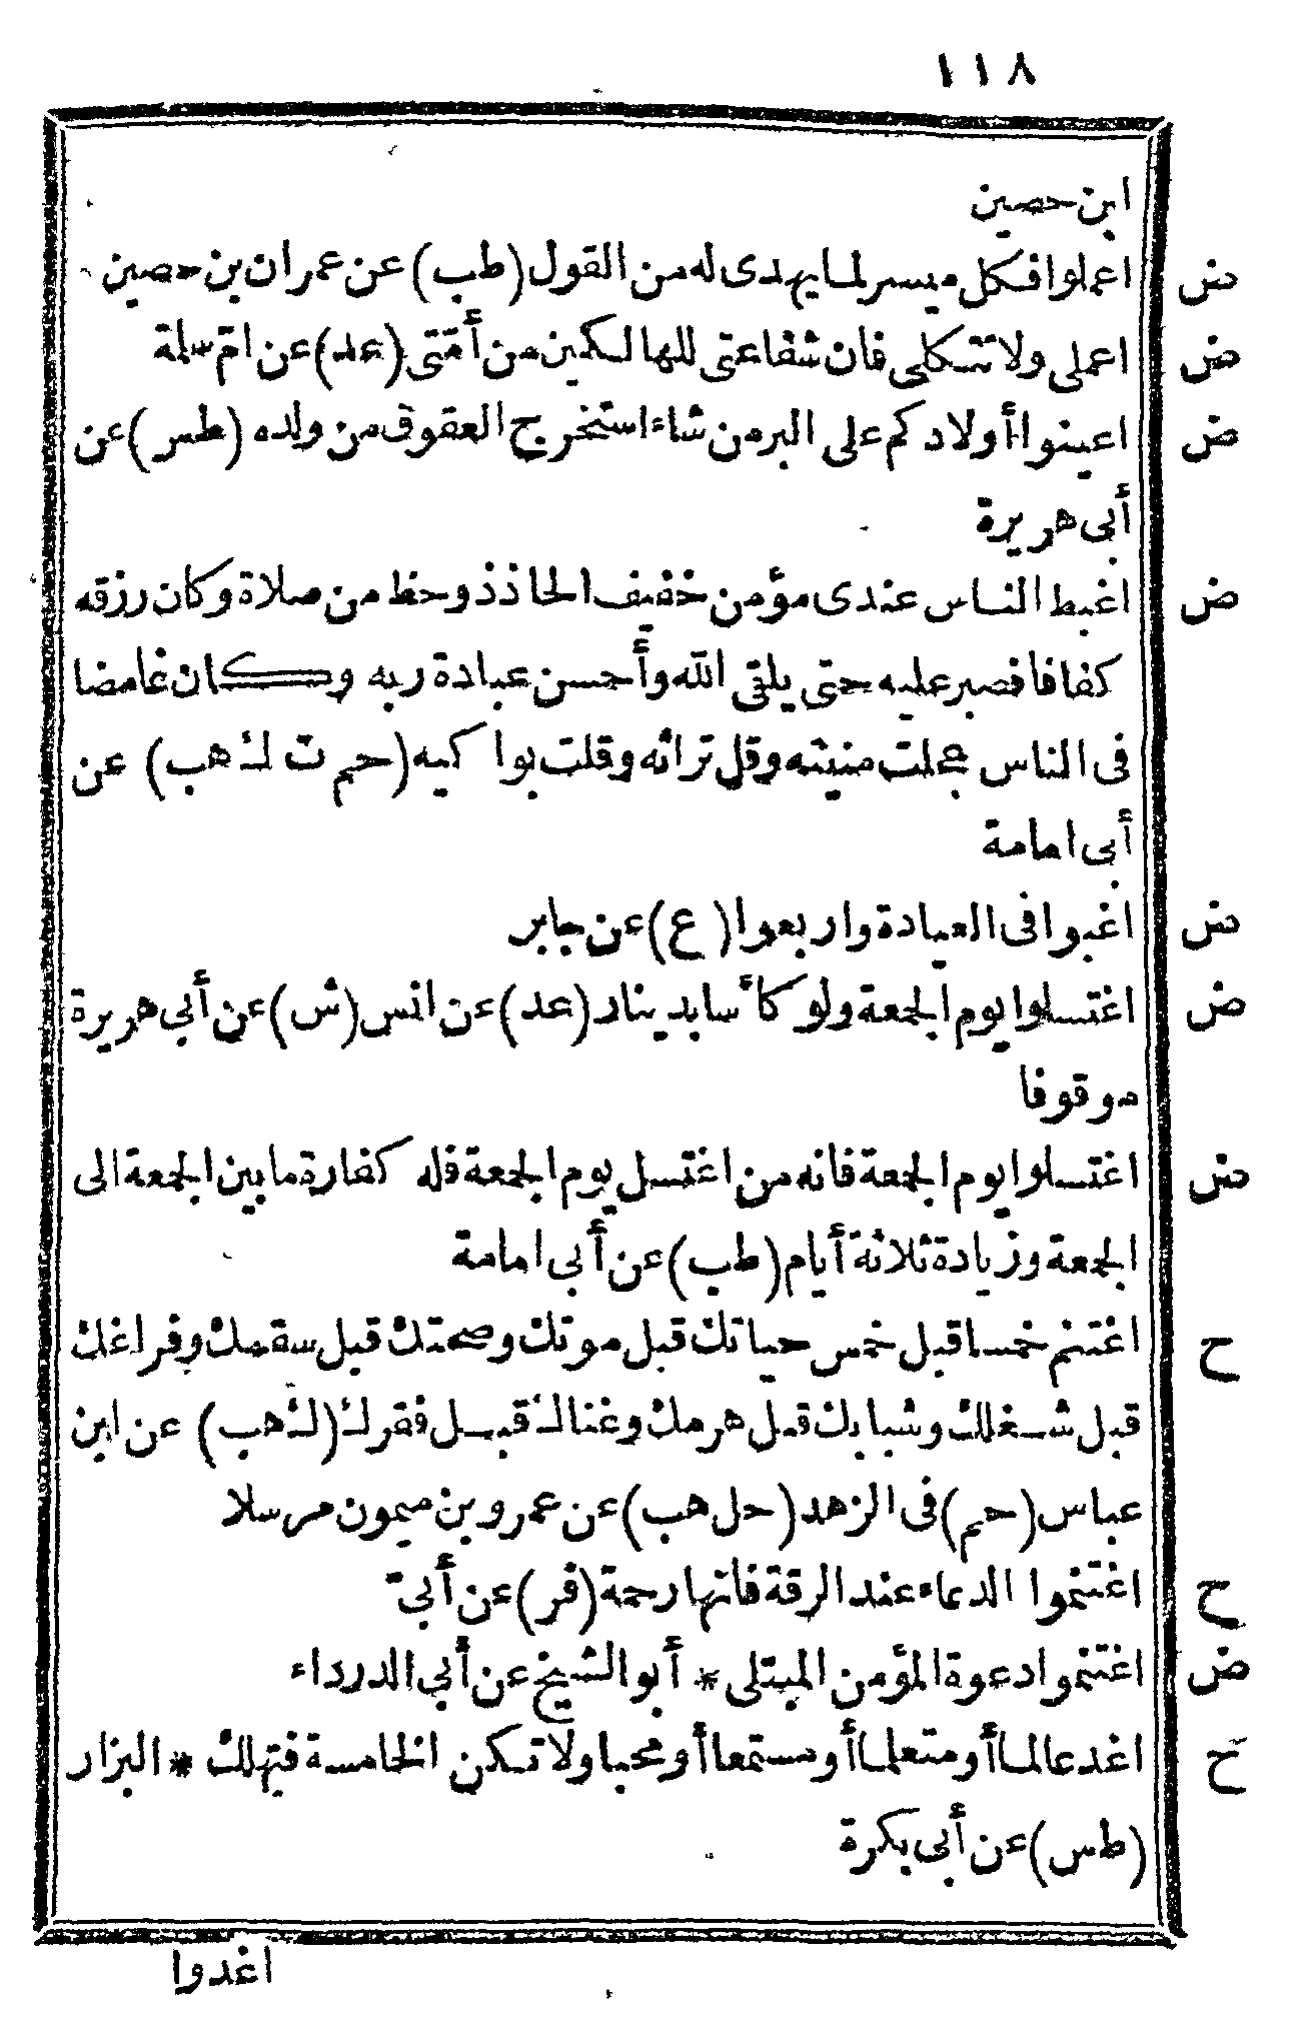 ١١٨
ابن حصين
ض اعملوا فكل ميسر لما يهدى له من القول (طب) عن عمران بن حصين
ض اعملى ولا تتكلى فان شفاعتى للهالكين من أمّتى (عد) عن امّ سلمة
ض اعينوا أولادكم على البر من شاء استخرج العقوق من ولده (طس) عن
أبى هريرة
ض اغبط الناس عندى مؤمن خفيف الحاذ ذو حظ من صلاة وكان رزقه
كفافا فصبر عليه حتى يلقى الله وأحسن عبادة ربه وكان غامضا
فى الناس عجلت منيته وقل تراثه وقلت بواكيه (حم ت ك هب) عن
أبى امامة
ض اغبوا فى العيادة واربعوا (ع) عن جابر
ض اغتسلوا يوم الجمعة ولو كأسا بدينار (عد) عن انس (ش) عن أبي هريرة
موقوفا
ض اغتسلوا يوم الجمعة فانه من اغتسل يوم الجمعة فله كفارة ما بين الجمعة الى
الجمعة وزيادة ثلاثة أيام (طب) عن أبى امامة
ح اغتنم خمسا قبل خمس حياتك قبل موتك وصحتك قبل سقمك وفراغك
قبل شغلك وشبابك قبل هرمك وغناك قبل فقرك (ك هب) عن ابن
عباس (حم) فى الزهد (حل هب) عن عمرو بن ميمون مرسلا
ح اغتنموا الدعاء عند الرقة فانها رحمة (فر) عن أبىّ
ض اغتنموا دعوة المؤمن المبتلى * أبو الشيخ عن أبي الدرداء
ح اغد عالما أو متعلما أو مستمعا أو محبا ولا تكن الخامسة فتهلك * البزار
(طس) عن أبى بكرة
اغدوا